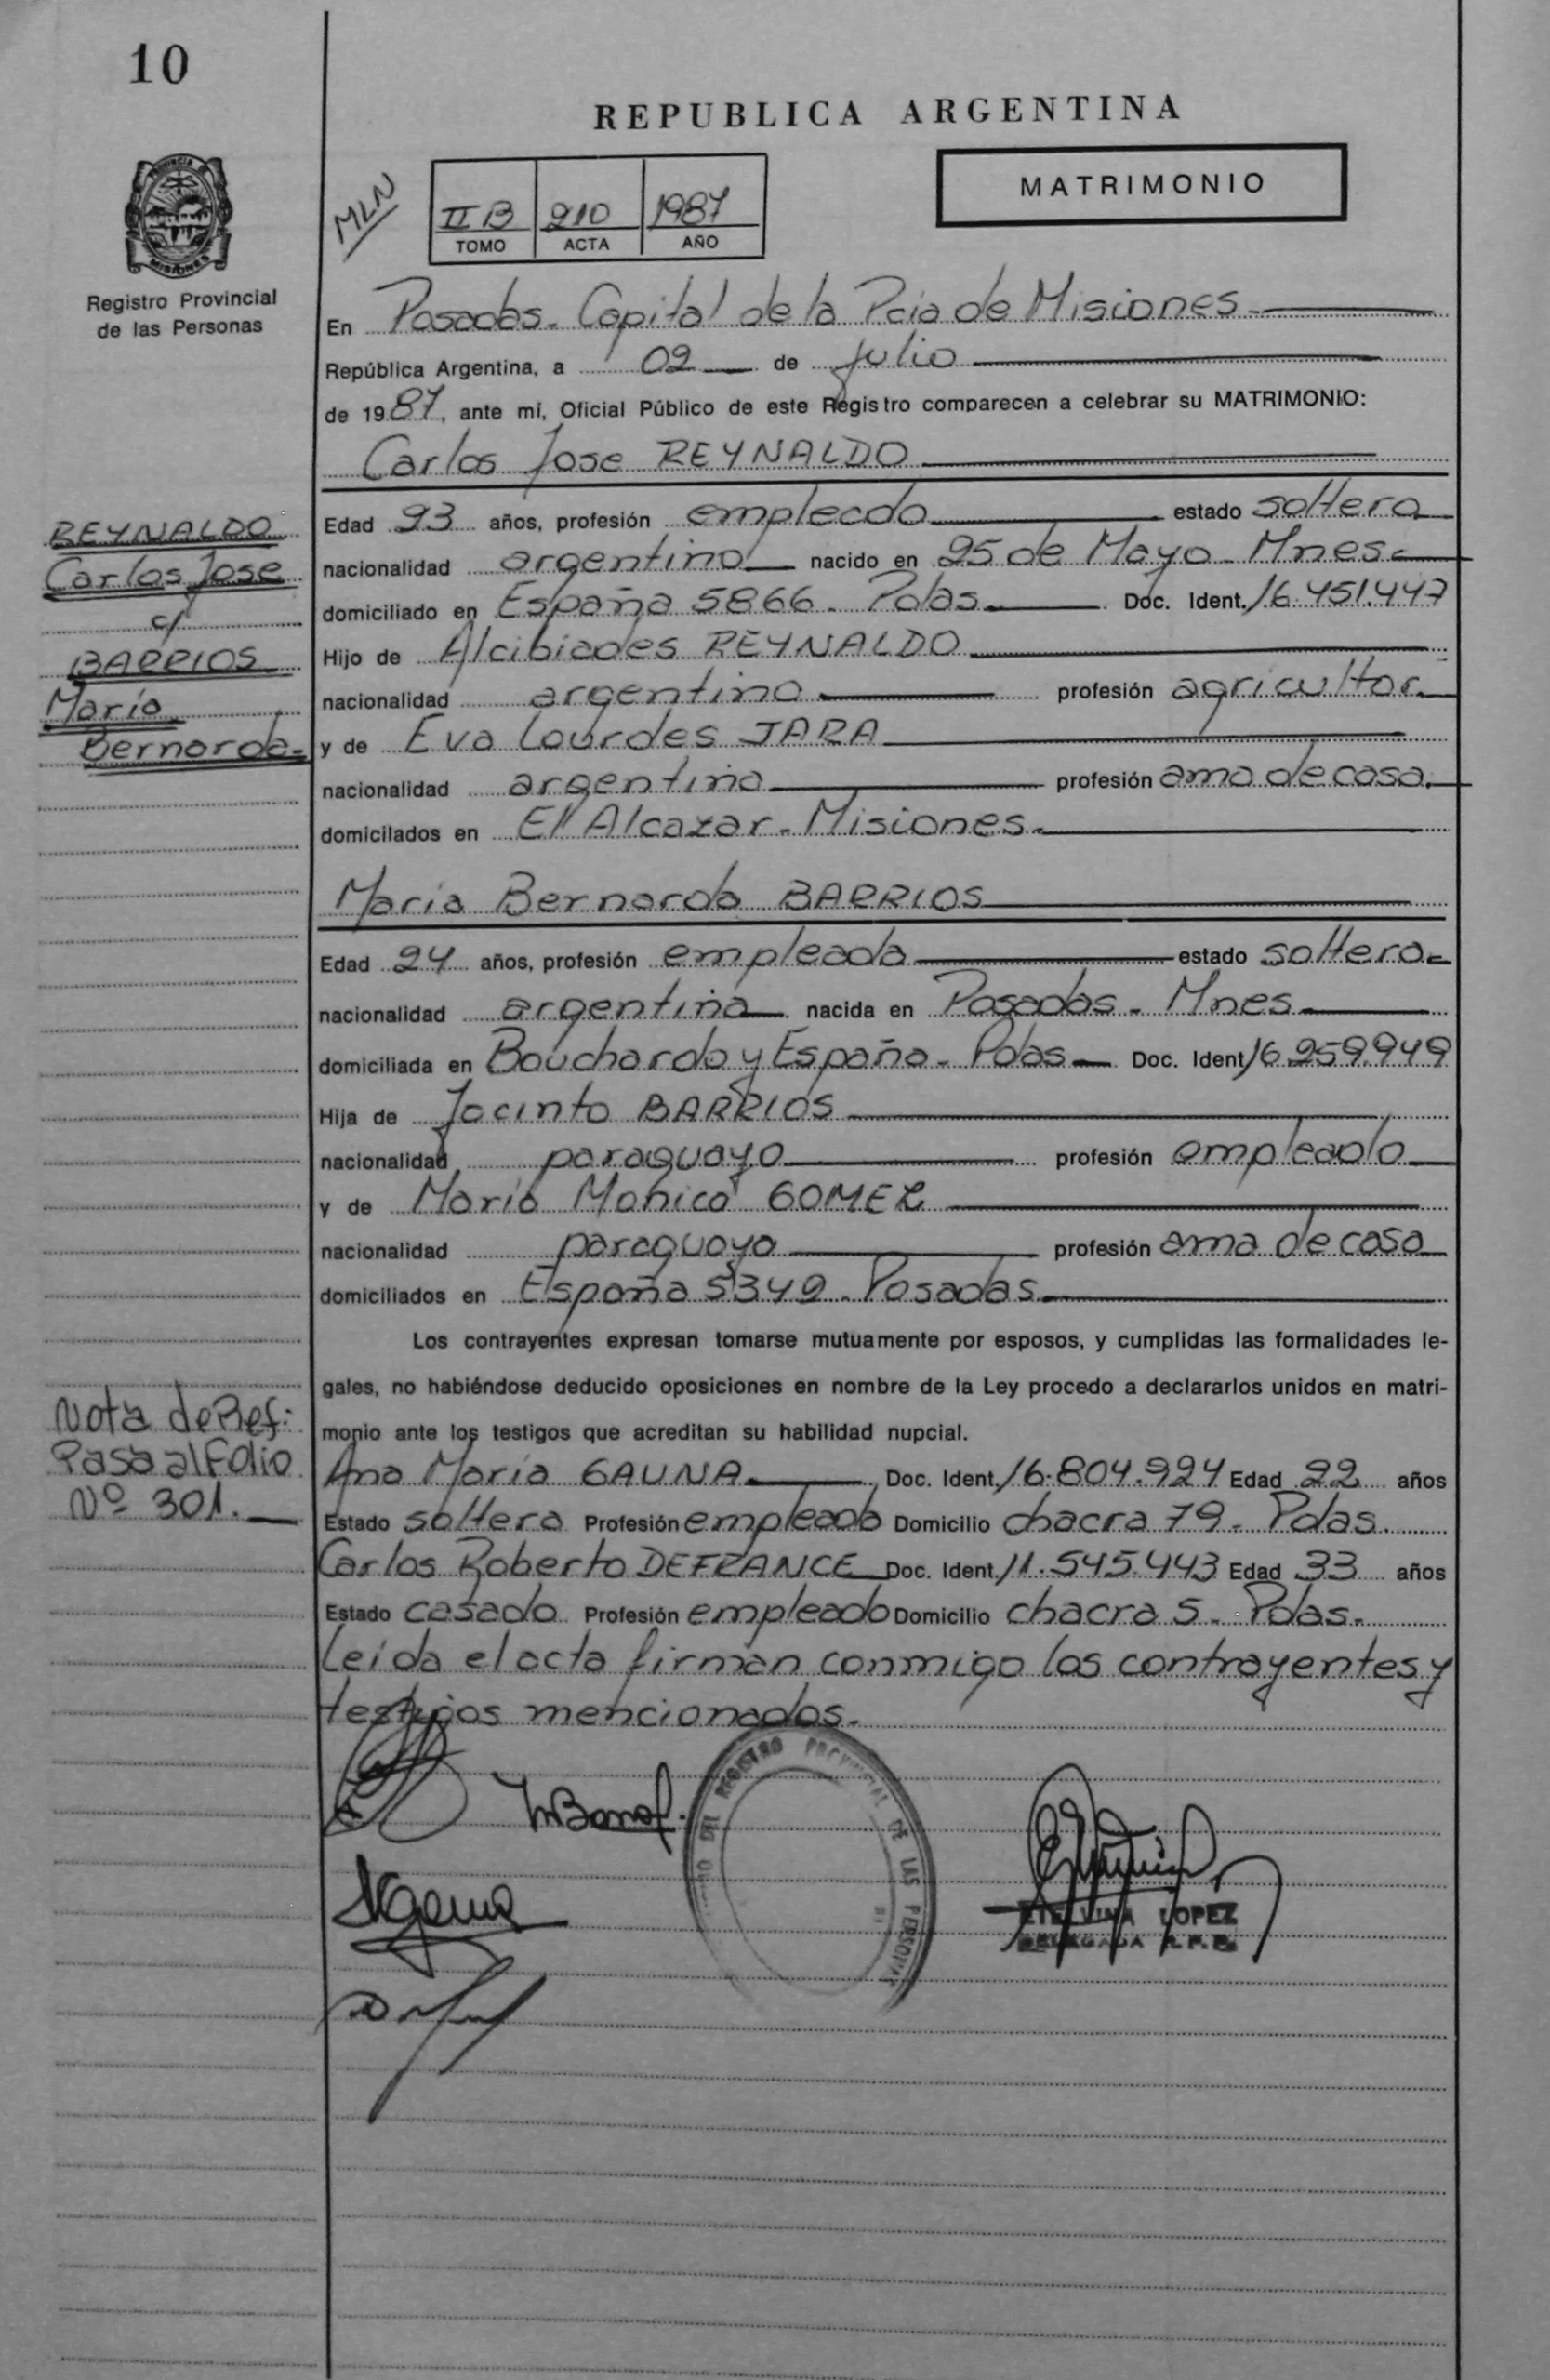 10
REPUBLICA ARGENTINA
MATRIMONIO
MLN
II B 210 1987
TOMO ACTA AÑO
Registro Provincial
de las Personas
En Posadas. Capital de la Pcia de Misiones
República Argentina, a 02 de Julio
de 1987, ante mí, Oficial Público de este Registro comparecen a celebrar su MATRIMONIO:
Carlos Jose REYNALDO
REYNALDO
Carlos Jose
c/
BARRIOS
María
Bernarda
Edad 23 años, profesión empleado estado soltero
nacionalidad argentino nacido en 25 de Mayo - Mnes.
domiciliado en España 5866. Pdas. Doc. Ident. 16.451.447
Hijo de Alcibiades REYNALDO
nacionalidad argentino profesión agricultor
y de Eva Lourdes JARA
nacionalidad argentina profesión ama de casa.
domicilados en El Alcazar - Misiones.
María Bernarda BARRIOS
Edad 24 años, profesión empleada estado soltera
nacionalidad argentina nacida en Posadas - Mnes.
domiciliada en Bouchardo y España - Pdas Doc. Ident 16.259.949
Hija de Jacinto BARRIOS
nacionalidad paraguayo profesión empleado
y de María Monica GOMEZ
nacionalidad paraguaya profesión ama de casa
domiciliados en España 5349. Posadas.
Los contrayentes expresan tomarse mutuamente por esposos, y cumplidas las formalidades le-
gales, no habiéndose deducido oposiciones en nombre de la Ley procedo a declararlos unidos en matri-
monio ante los testigos que acreditan su habilidad nupcial.
Nota de Ref:
Pasa al Folio
Nº 301.
Ana María GAUNA Doc. Ident. 16.804.924 Edad 22 años
Estado soltera Profesión empleada Domicilio chacra 79 - Pdas.
Carlos Roberto DEFRANCE Doc. Ident. 11.545.443 Edad 33 años
Estado casado Profesión empleado Domicilio chacra 5. Pdas.
Leída el acta firman conmigo los contrayentes y
testigos mencionados.
DEL REGISTRO PROVINCIAL DE LAS PERSONAS
ETELVINA LOPEZ
DELEGADA R.P.P.